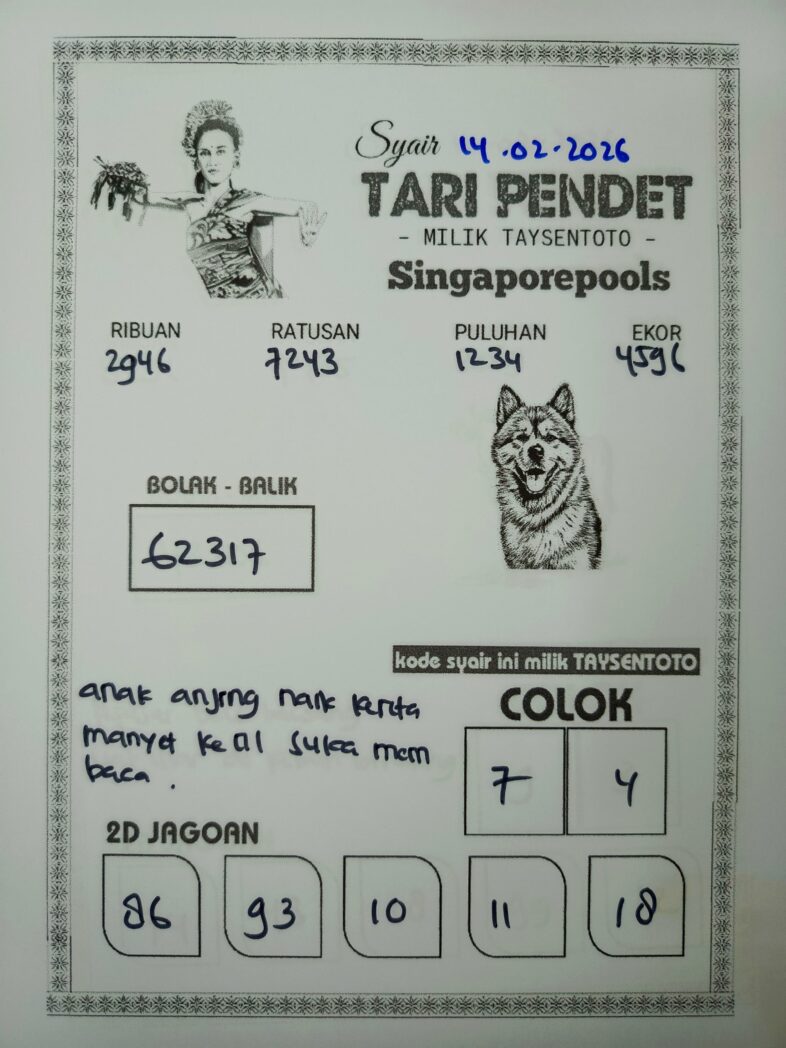 Syair 14.02.2026
TARI PENDET
- MILIK TAYSENTOTO -
Singaporepools
RIBUAN RATUSAN PULUHAN EKOR
2946 7243 1234 4596
BOLAK - BALIK
62317
kode syair ini milik TAYSENTOTO
anak anjing naik kerita
manyet kecil suka mem
baca .
COLOK
7 4
2D JAGOAN
86 93 10 11 18